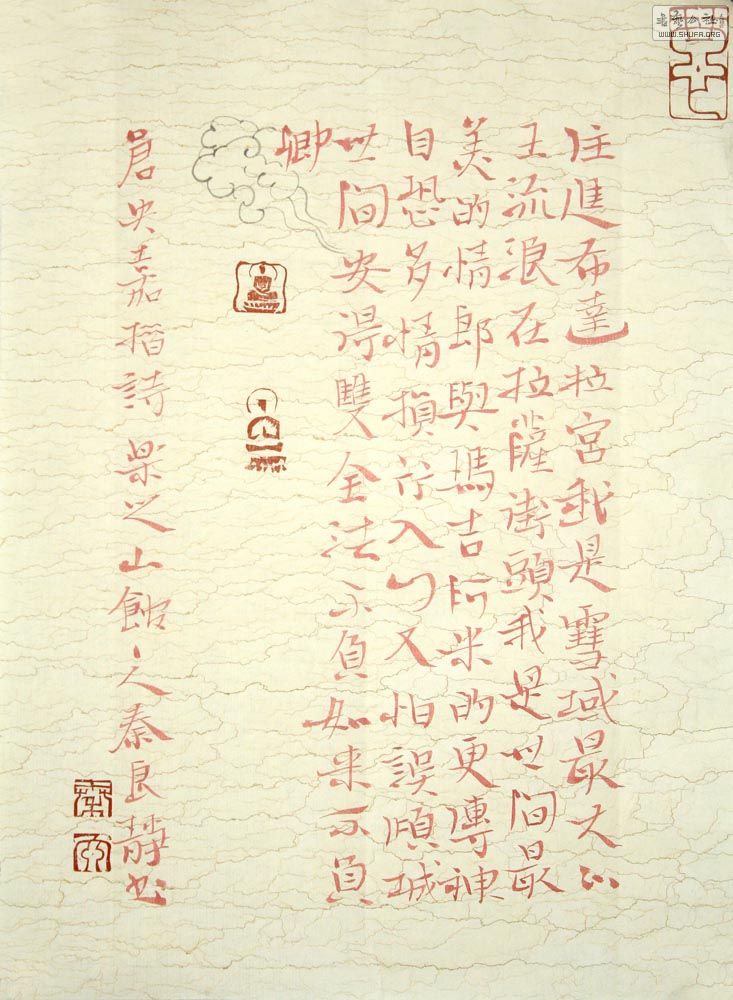 住進布達拉宮我是雪域最大的
王流浪在拉薩街頭我是世間最
美的情郎與瑪吉阿米的更傳神
自恐多情損行入山又怕誤傾城
世間安得雙全法不負如來不負
卿
倉央嘉措詩 樂之山館人秦良靜书
WWW.SHUFA.ORG